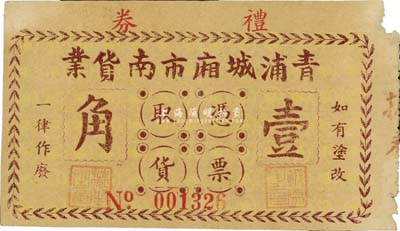 禮券
青浦城廂市南貨業
壹角
憑票取貨
如有塗改
一律作廢
No 001326